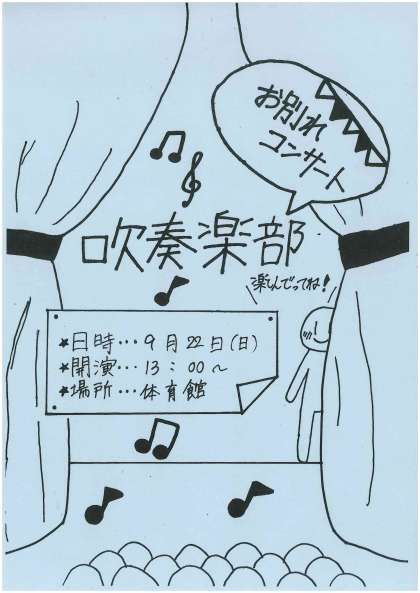 お別れ
コンサート
吹奏楽部
楽しんでってね！
★日時…9月22日(日)
★開演…13：00～
★場所…体育館